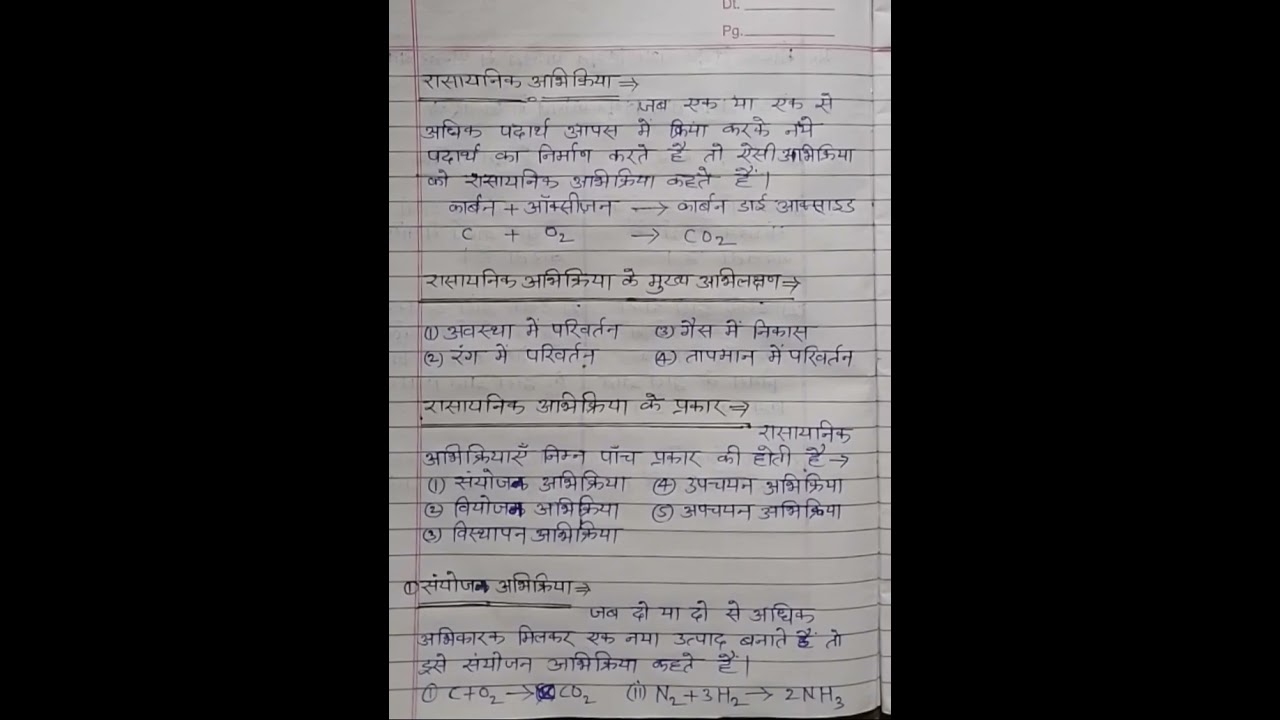 Dt.
Pg.
रासायनिक अभिक्रिया ⇒
जब एक या एक से
अधिक पदार्थ आपस में क्रिया करके नये
पदार्थ का निर्माण करते है तो ऐसी अभिक्रिया
को रासायनिक अभिक्रिया कहते हैं।
कार्बन + ऑक्सीजन → कार्बन डाई आक्साइड
C + O₂ → CO₂
रासायनिक अभिक्रिया के मुख्य अभिलक्षण ⇒
① अवस्था में परिवर्तन ③ गैस में निकास
② रंग में परिवर्तन ④ तापमान में परिवर्तन
रासायनिक अभिक्रिया के प्रकार ⇒
रासायनिक
अभिक्रियाएँ निम्न पाँच प्रकार की होती है →
① संयोजन अभिक्रिया ④ उपचयन अभिक्रिया
② वियोजन अभिक्रिया ⑤ अपचयन अभिक्रिया
③ विस्थापन अभिक्रिया
① संयोजन अभिक्रिया ⇒
जब दो या दो से अधिक
अभिकारक मिलकर एक नया उत्पाद बनाते हैं तो
इसे संयोजन अभिक्रिया कहते हैं।
① C+O₂ → CO₂ (ii) N₂ + 3H₂ → 2NH₃